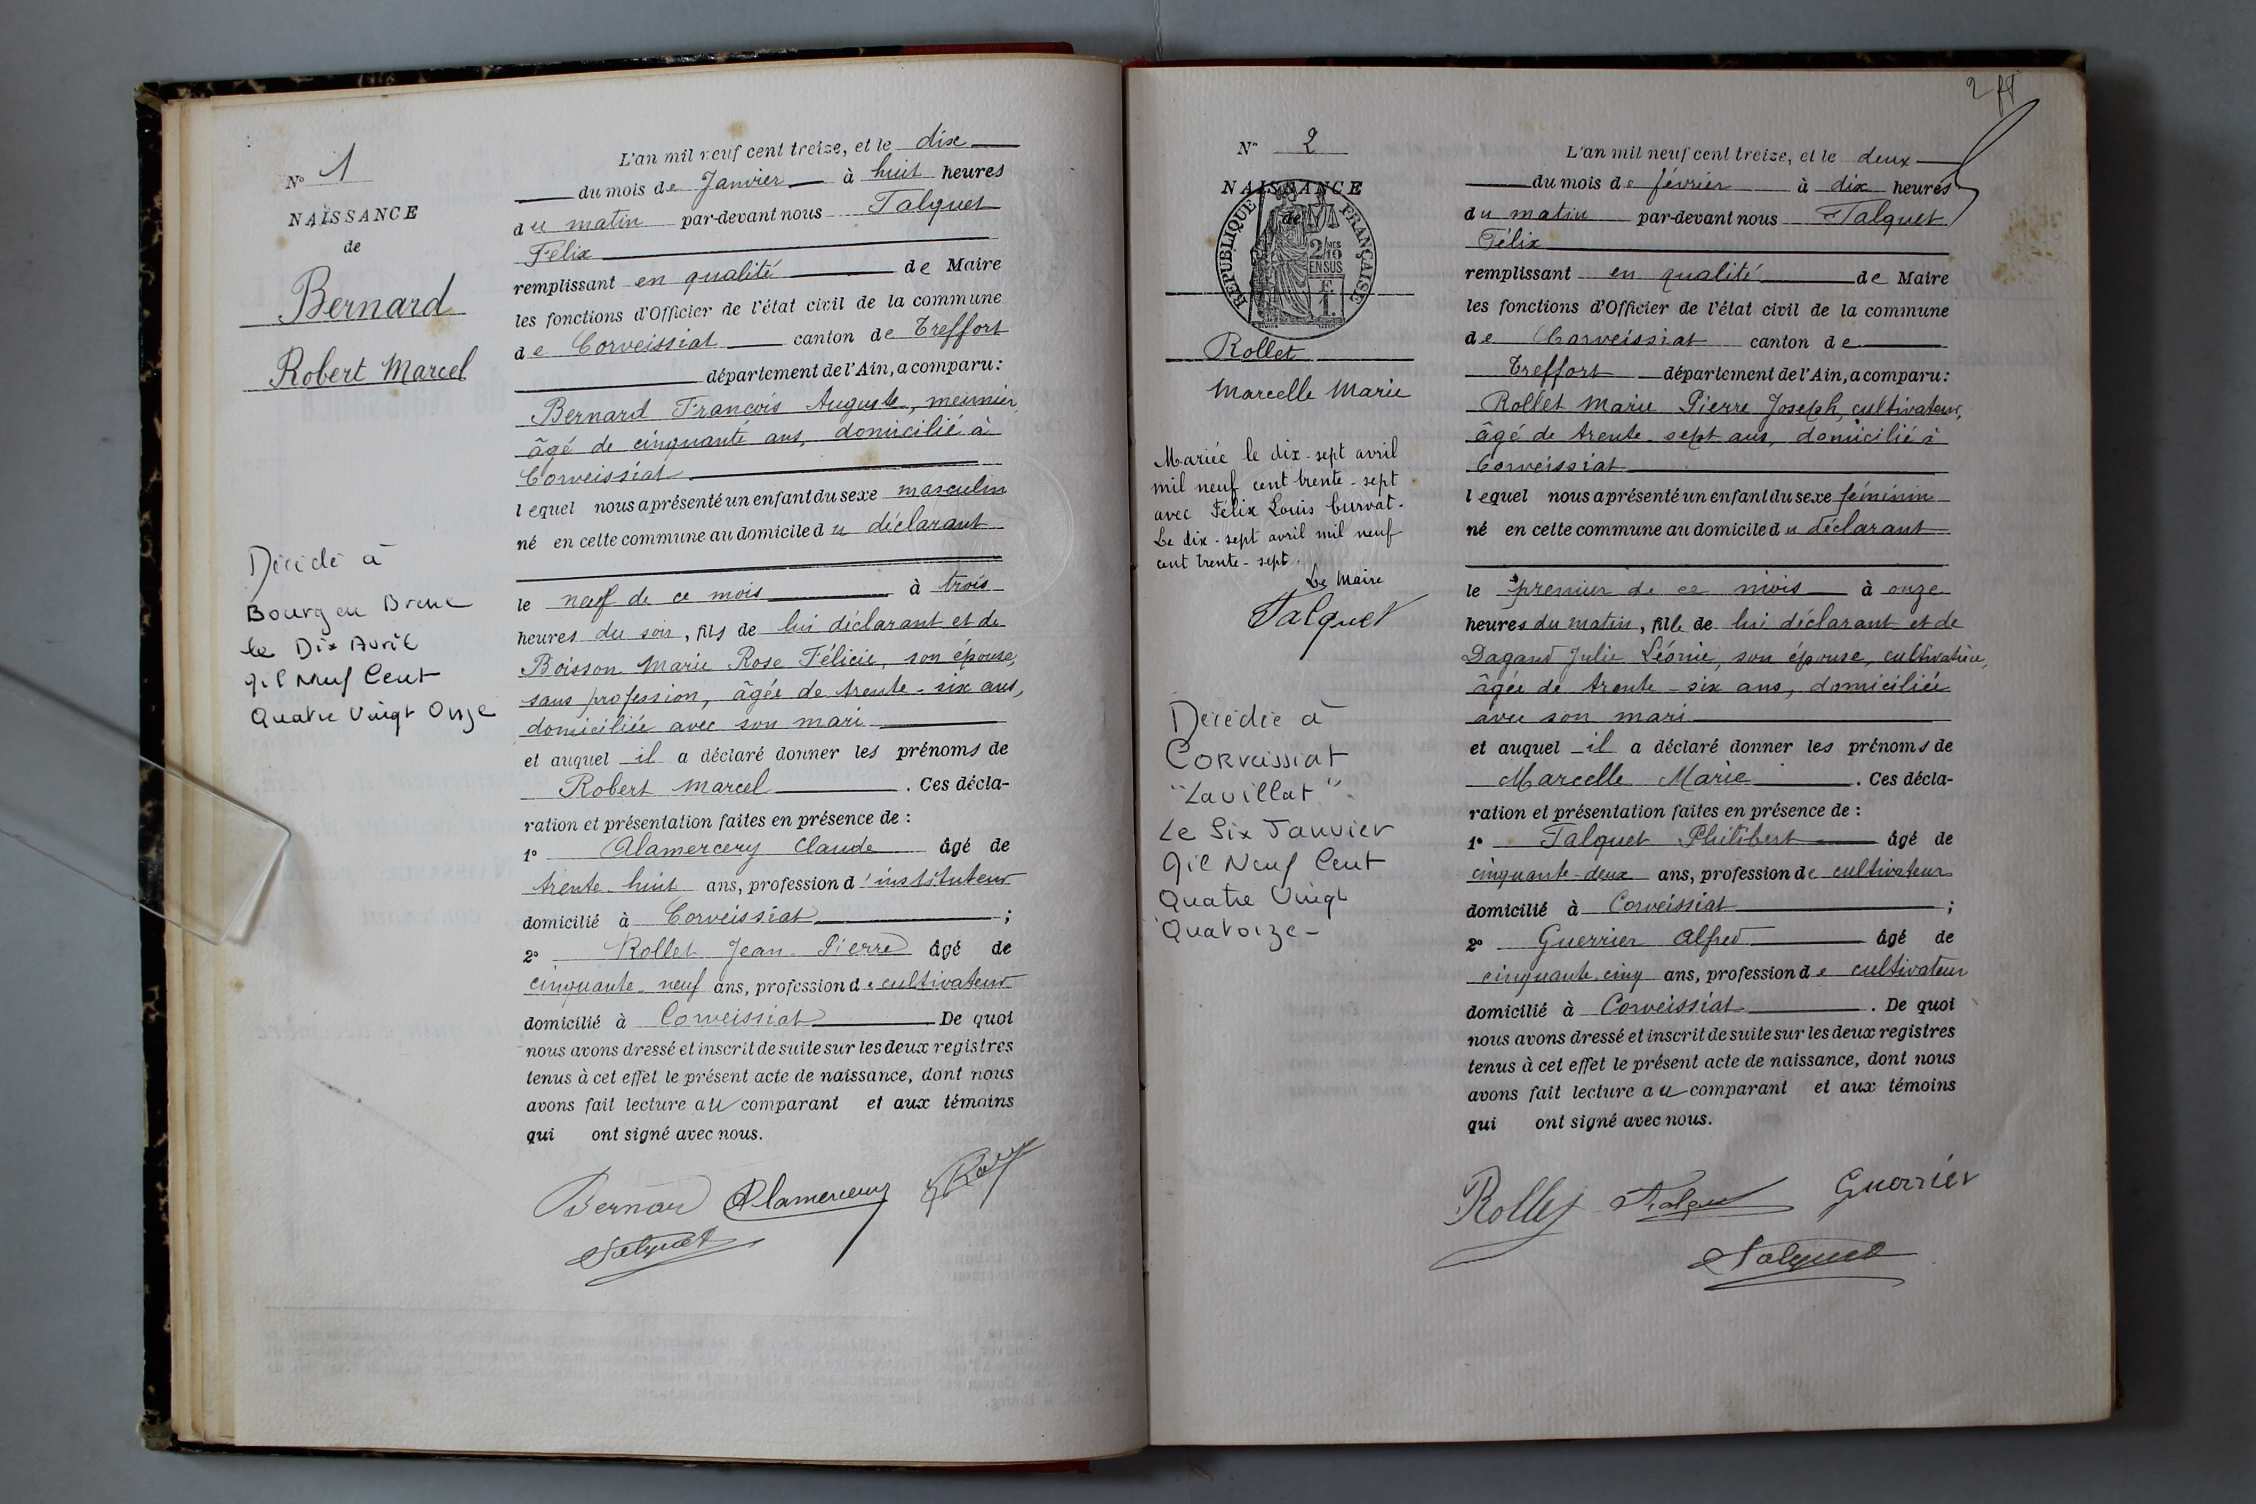 N° 1
NAISSANCE
de
Bernard
Robert Marcel
Décédé à
Bourg en Bresse
le Dix Avril
Mil Neuf Cent
Quatre Vingt Onze
L'an mil neuf cent treize, et le dix
du mois de Janvier à huit heures
du matin par-devant nous Talquet
Félix
remplissant en qualité de Maire
les fonctions d'Officier de l'état civil de la commune
de Corveissiat canton de Treffort
département de l'Ain, a comparu :
Bernard François Auguste, meunier,
âgé de cinquante ans, domicilié à
Corveissiat
lequel nous a présenté un enfant du sexe masculin
né en cette commune au domicile du déclarant
le neuf de ce mois à trois
heures du soir, fils de lui déclarant et de
Boisson Marie Rose Félicie, son épouse,
sans profession, âgée de trente-six ans,
domiciliée avec son mari
et auquel il a déclaré donner les prénoms de
Robert Marcel. Ces décla-
ration et présentation faites en présence de :
1° Alamercery Claude âgé de
trente-huit ans, profession d'instituteur
domicilié à Corveissiat ;
2° Rollet Jean-Pierre âgé de
cinquante-neuf ans, profession de cultivateur
domicilié à Corveissiat De quoi
nous avons dressé et inscrit de suite sur les deux registres
tenus à cet effet le présent acte de naissance, dont nous
avons fait lecture au comparant et aux témoins
qui ont signé avec nous.
Bernard Alamercery
Talquet
2
N° 2
NAISSANCE
de
RÉPUBLIQUE FRANÇAISE
2/10 MES
EN SUS
F.
1.
Rollet
Marcelle Marie
Mariée le dix-sept avril
mil neuf cent trente-sept
avec Félix Louis Curvat.
Le dix-sept avril mil neuf
cent trente-sept.
Le Maire
Talquet
Décédée à
Corveissiat
"Lavillat".
Le Six Janvier
Mil Neuf Cent
Quatre Vingt
Quatorze-
L'an mil neuf cent treize, et le deux
du mois de février à dix heures
du matin par-devant nous Talquet
Félix
remplissant en qualité de Maire
les fonctions d'Officier de l'état civil de la commune
de Corveissiat canton de
Treffort département de l'Ain, a comparu :
Rollet Marie Pierre Joseph, cultivateur,
âgé de trente-sept ans, domicilié à
Corveissiat
lequel nous a présenté un enfant du sexe féminin
né en cette commune au domicile du déclarant
le premier de ce mois à onze
heures du matin, fille de lui déclarant et de
Dagand Julie Léonie, son épouse, cultivatrice,
âgée de trente-six ans, domiciliée
avec son mari
et auquel il a déclaré donner les prénoms de
Marcelle Marie. Ces décla-
ration et présentation faites en présence de :
1° Talquet Philibert âgé de
cinquante-deux ans, profession de cultivateur
domicilié à Corveissiat ;
2° Guerrier Alfred âgé de
cinquante-cinq ans, profession de cultivateur
domicilié à Corveissiat. De quoi
nous avons dressé et inscrit de suite sur les deux registres
tenus à cet effet le présent acte de naissance, dont nous
avons fait lecture au comparant et aux témoins
qui ont signé avec nous.
Rollet Talquet Guerrier
Talquet